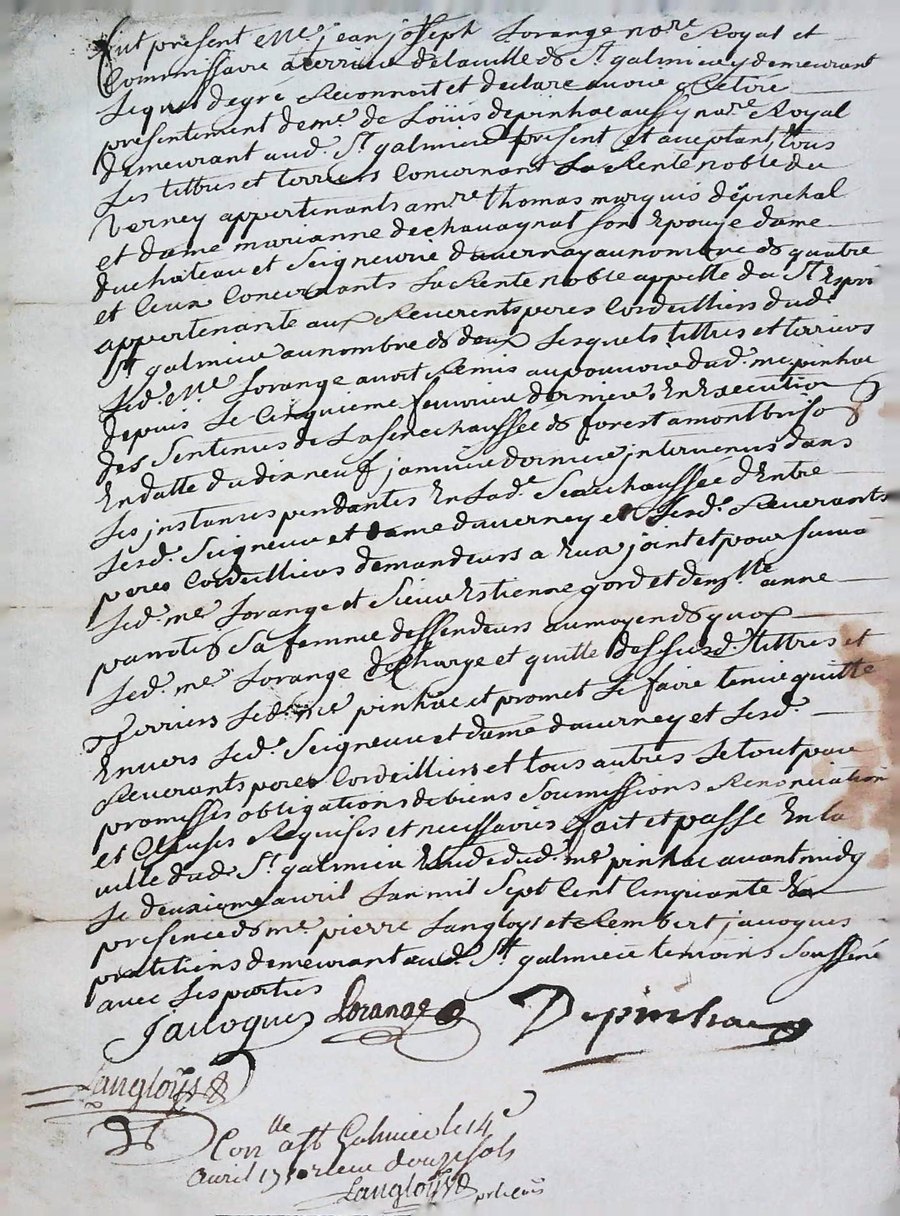 fut présent Me jean joseph Lorange nore Royal et
Commissaire a terrier de la ville de St galmier y demeurant
Lequel de gré Reconnoit et declare avoir Retiré
présentement de me de Loüis depinhac aussy nore Royal
demeurant aud. St galmier présent et aceptant, tous
Les tiltres et terriers Concernant La Rente noble du
Verney appertenants a mre thomas marquis dépinchal
et dame marianne dechavagnat son Epouse dame
du chateau et Seigneurie duverney au nombre de quatre
et Ceux Concernants La Rente noble appellé du St Esprit
appertenante aux Reverents peres Cordeilliers dud.
St galmier au nombre de deux Lesquels tiltres et terriers
Led. Me Lorange avoit Remis au pouvoir dud. me pinhac
depuis Le Cinquieme fevrier dernier En Execution
des Sentences de La senechaussée de forest a montbrison
En datte du dixneuf janvier dernier intervenus dans
Les instances pendantes En Lade Senechaussée d'Entre
Lesd. Seigneur et dame duverney et Lesd. Reverants
peres Cordeilliers demandeurs a Eux joint et poursuivant
Led. me Lorange et Sieur Estienne gord et demlle anne
parrotes Sa femme deffendeurs au moyen de quoy
Led. me Lorange decharge et quitte dessusd. tiltres et
terriers Led. me pinhac et promet Le faire tenir quitte
Envers Led. Seigneur et dame duverney et Lesd.
Reverants peres Cordeilliers et tous autres Le tout par
promesses obligations de biens Soumissions Renonciation
et Clauses Requises et necessaires fait et passé En la
ville dud. St galmier Etude dud. me pinhac avant midy
Le deuxieme avril Lan mil Sept Cent Cinquante En
présence de me pierre Langloys et Rembert jacoques
pratitiens demeurant aud. St galmier temoins Soussené
avec Les parties
Jacoques Lorange Depinhac
Langloÿs
Conlle a St Galmier le 14e
Avril 1750 reçu douze sols
Langloÿs